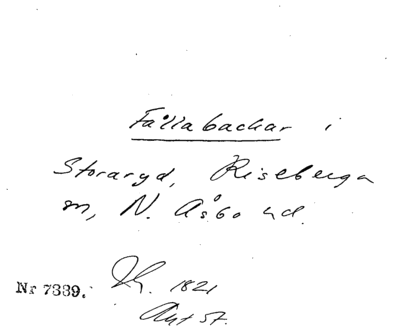 Fällabackar i
Storaryd, Riseberga
sn, N. Åsbo hd.
Nr 7339. 1821